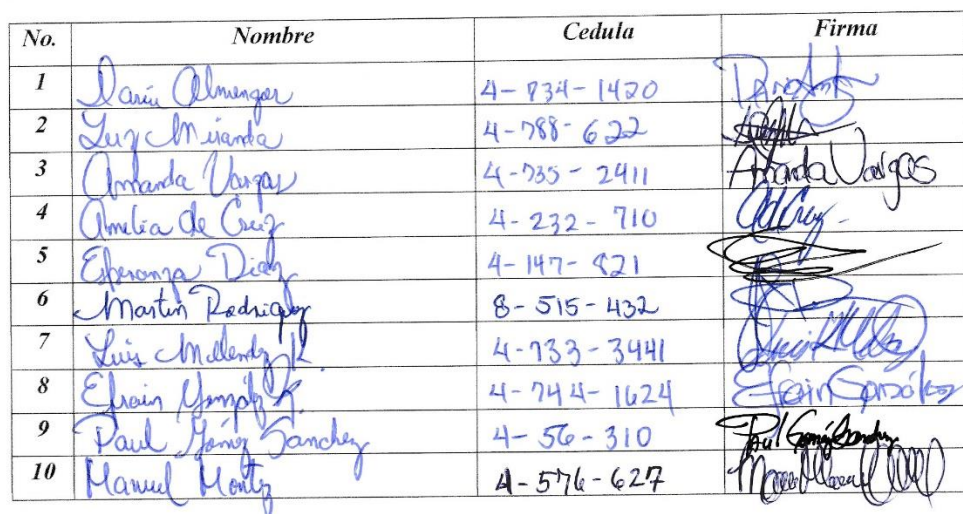 No. Nombre Cedula Firma
1 Darío Almengor 4-734-1420
2 Luz Miranda 4-788-622
3 Amanda Vargas 4-735-2411 Amanda Vargas
4 Amelia de Cruz 4-232-710 AdCruz
5 Esperanza Diaz 4-147-821
6 Martin Rodriguez 8-515-432
7 Luis R. 4-733-3441
8 Efrain González R. 4-744-1624 Efrain González
9 Paul Gómez Sanchez 4-56-310 Paul Gómez Sanchez
10 Manuel Montz 4-576-627